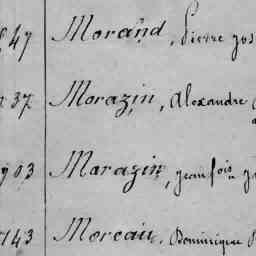 47 Morand, Pierre jos
37 Morazin, Alexandre
903 Marazin, jean fois j
143 Moreau, Dominique